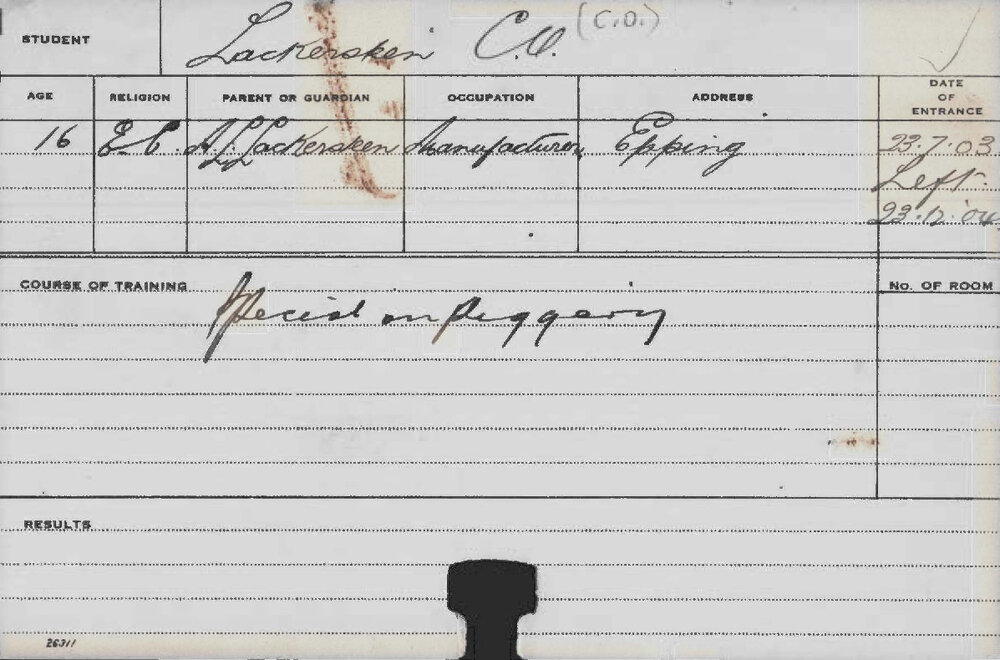 STUDENT Lackersteen C.O. (C.O.)
AGE RELIGION PARENT OR GUARDIAN OCCUPATION ADDRESS DATE OF ENTRANCE
16 E.C. A. L. Lackersteen Manufacturer Epping 23.7.03
Left
23.12.04
COURSE OF TRAINING No. OF ROOM
Special in Piggery
RESULTS
26311